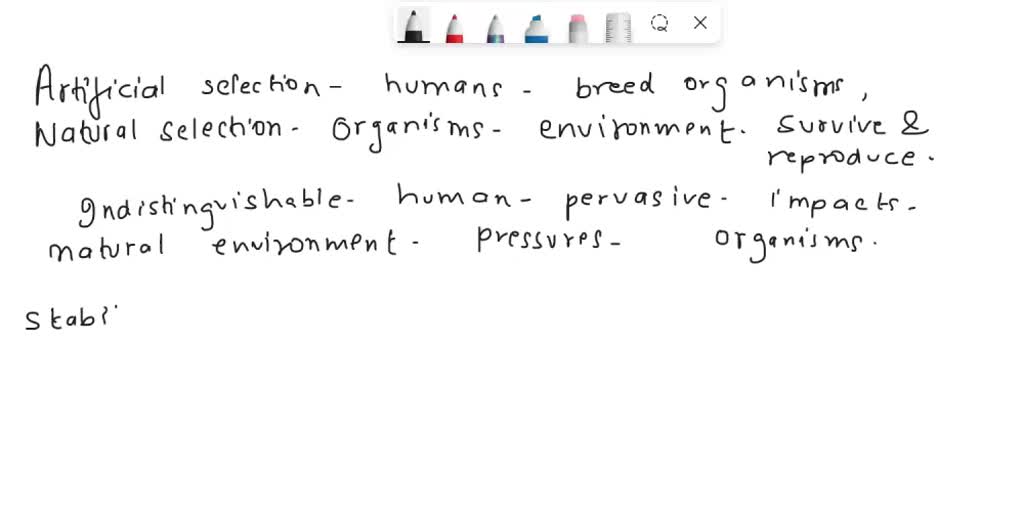 Artificial selection - humans - breed organisms,
Natural selection - organisms - environment. survive &
reproduce.
Indistinguishable - human - pervasive - impacts -
natural environment - pressures - organisms.
stabi